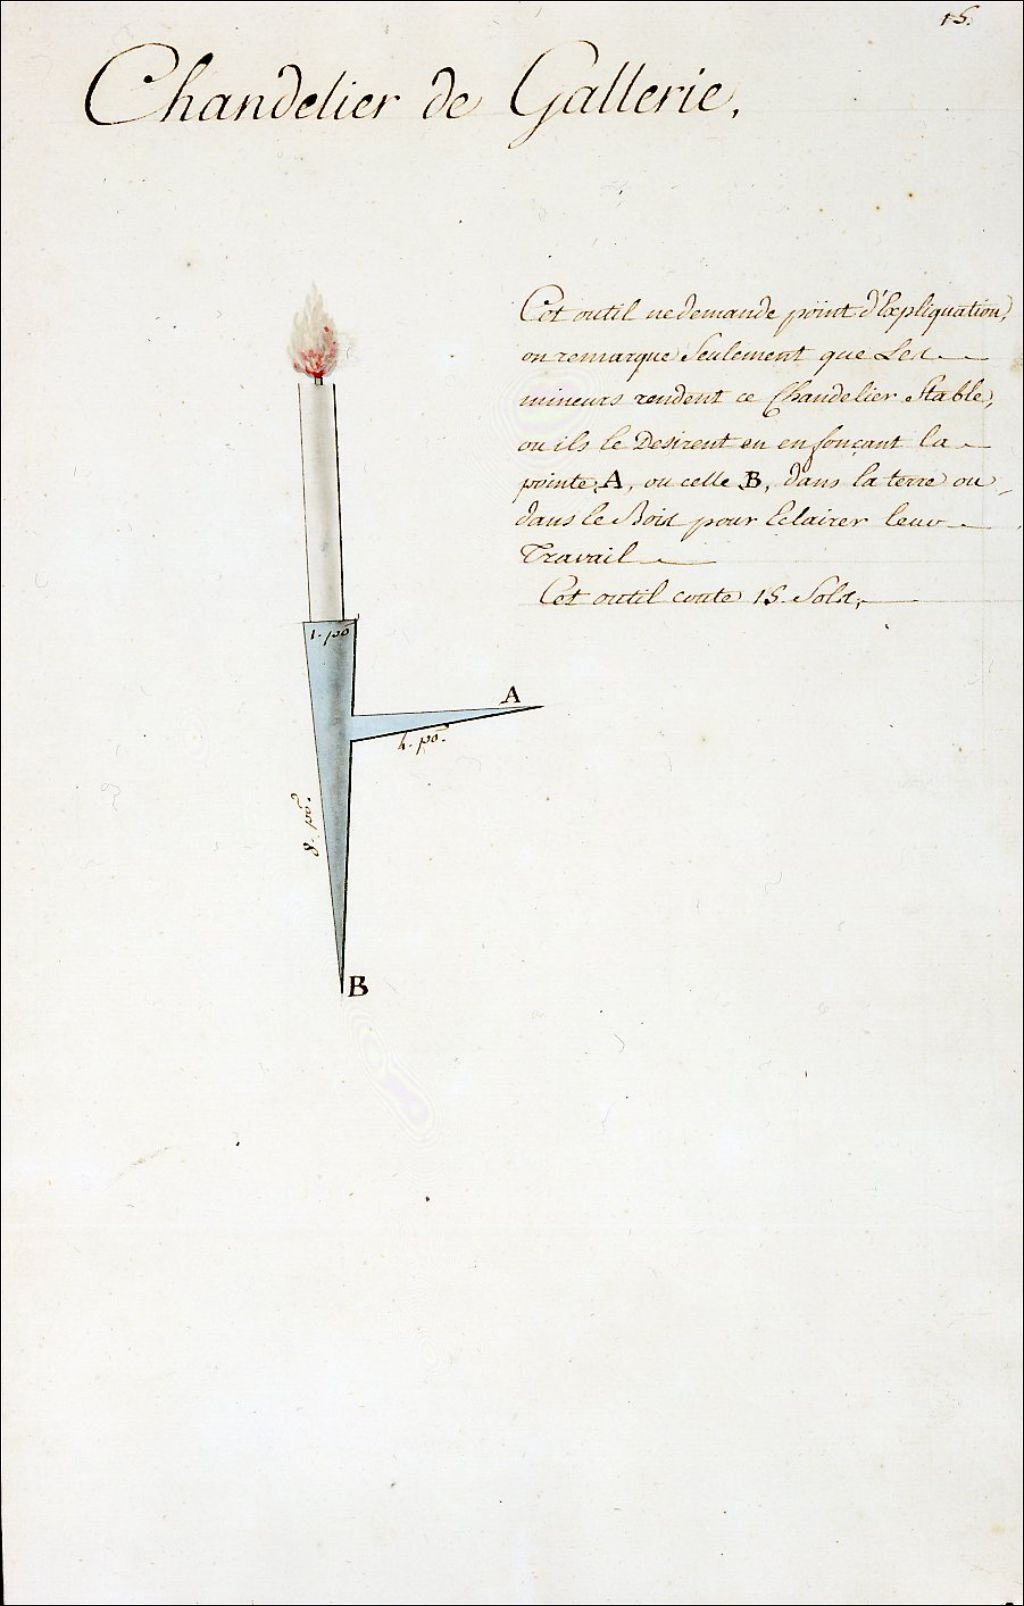 15.
Chandelier de Gallerie,
Cet outil ne demande point d'Expliquation,
on remarque Seulement que Les
mineurs rendent ce Chandelier Stable,
ou ils le Desirent en enfonçant la
pointe A, ou celle B, dans la terre ou
dans le Bois pour Eclairer leur
Travail
Cet outil coute 15. Sols,
1. po
A
4. po.
8. po.
B